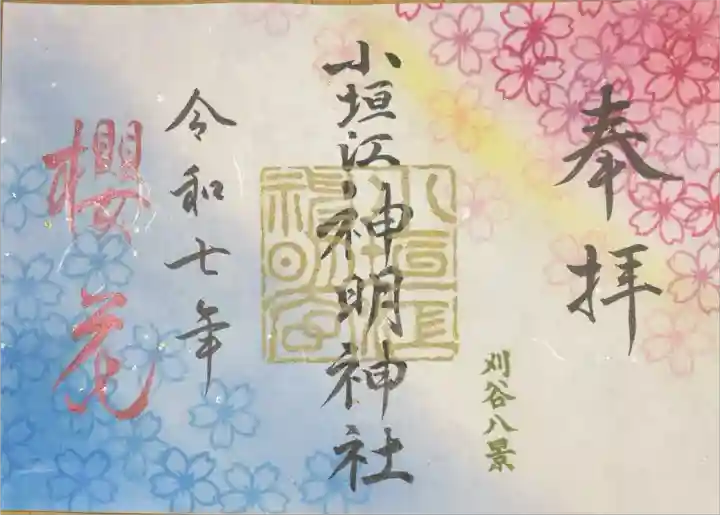 奉拝
刈谷八景
小垣江神明神社
令和七年
櫻花